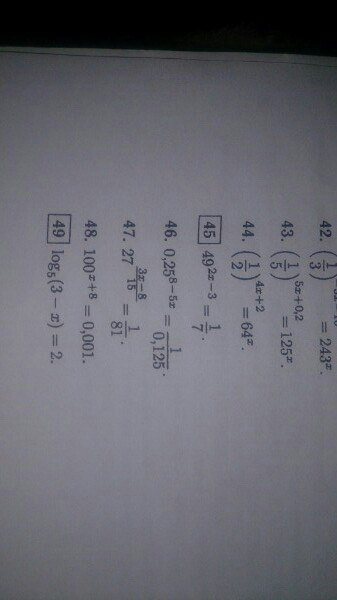 42. (1/3) = 243ˣ.
43. (1/5)^(5x+0,2) = 125ˣ.
44. (1/2)^(4x+2) = 64ˣ.
45 49^(2x−3) = 1/7.
46. 0,25^(8−5x) = 1/0,125.
47. 27^((3x−8)/15) = 1/81.
48. 100^(x+8) = 0,001.
49 log₅(3 − x) = 2.